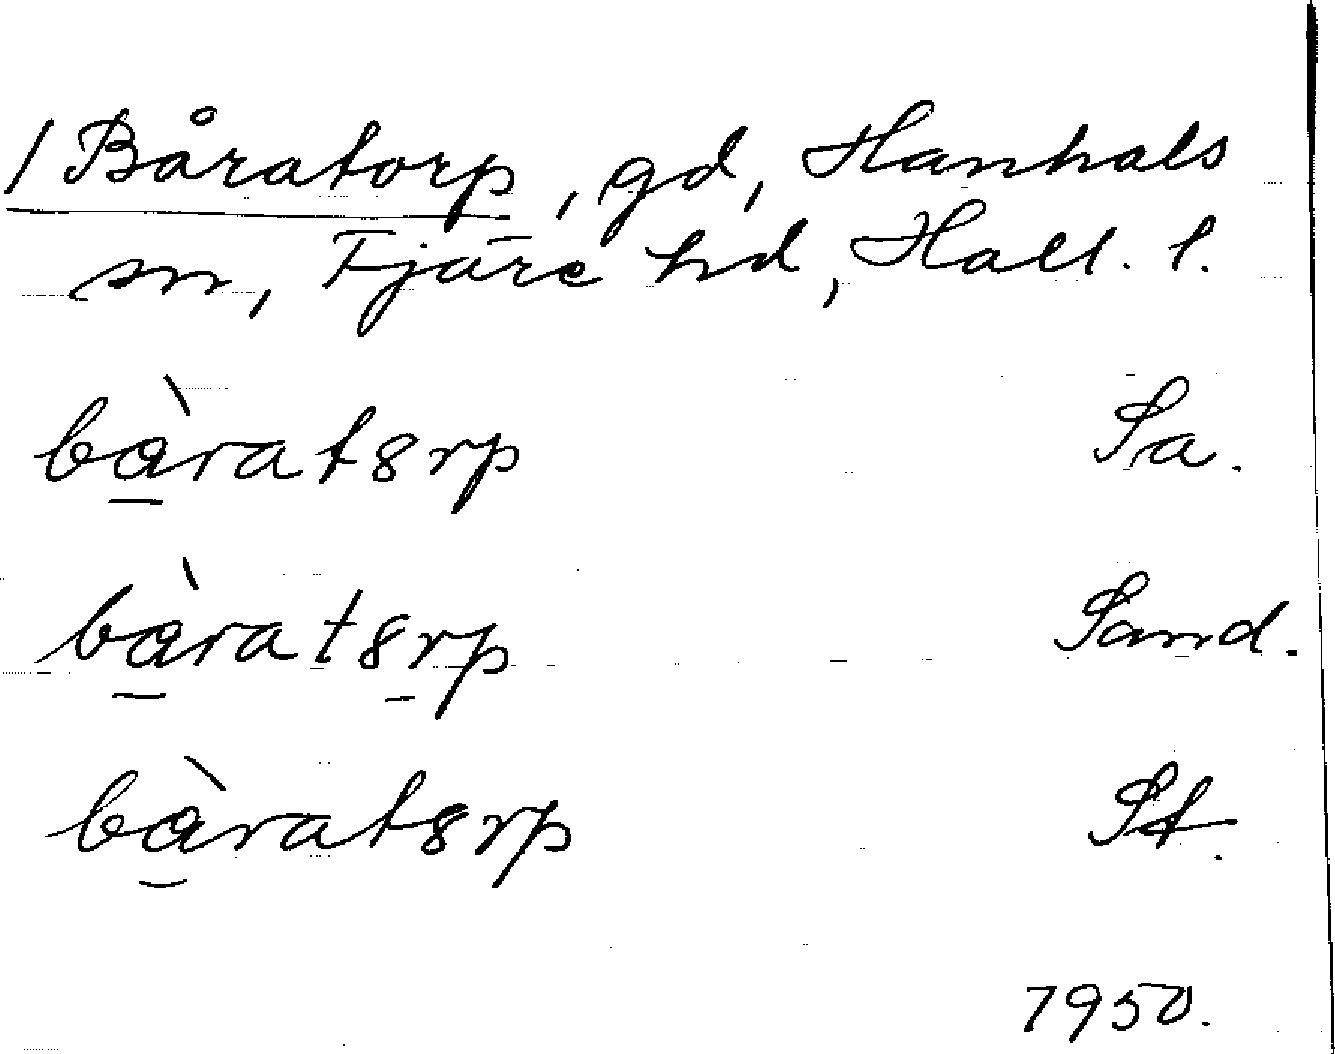 / Båratorp, gd, Hanhals
sn, Fjäre hd, Hall. l.
bàrat8rp Sa.
bàrat8rp Sand.
bàrat8rp St.
1950.